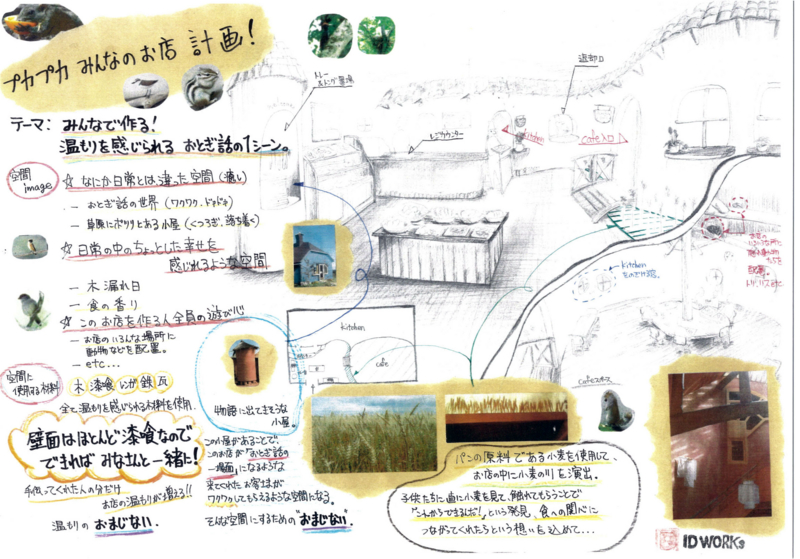 プカプカ みんなのお店 計画!
テーマ: みんなで作る!
温もりを感じられる おとぎ話の1シーン。
空間
image
☆ なにか日常とは違った空間(癒し)
― おとぎ話の世界(ワクワク、ドキドキ)
― 草原にポツリとある小屋(くつろぎ、落ち着く)
☆ 日常の中のちょっとした幸せを
感じれるような空間
― 木漏れ日
― 食の香り
☆ このお店を作る人全員の遊び心
― お店のいろんな場所に
動物などを配置。
― etc...
空間に
使用する材料
木 漆喰 レンガ 鉄 瓦
全て温もりを感じられる材料を使用
壁面はほとんど漆喰なので
できれば みなさんと一緒に!
手伝ってくれた人の分だけ
お店の温もりが増える!!
温もりの おまじない.
トレー
&トング置場
レジカウンター
kitchen
cafe入口
kitchen
cafe
cafeスペース
Kitchen
物語に出てきそうな
小屋。
この小屋があることで、
このお店が"おとぎ話の
一場面"になるような
来てくれた お客様が
ワクワクしてもらえるような空間になる。
そんな空間にするための"おまじない".
パンの原料である小麦を使用して、
お店の中に小麦の川を演出。
子供たちに直に小麦を見て、触れてもらうことで
という発見、食への関心に
つながってくれたらという想いを込めて...
ID WORKs